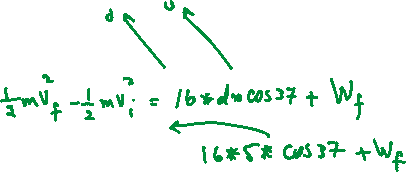 d 0
½mV_f² - ½mV_i² = 16*d*cos37 + W_f
16*5* cos37 + W_f